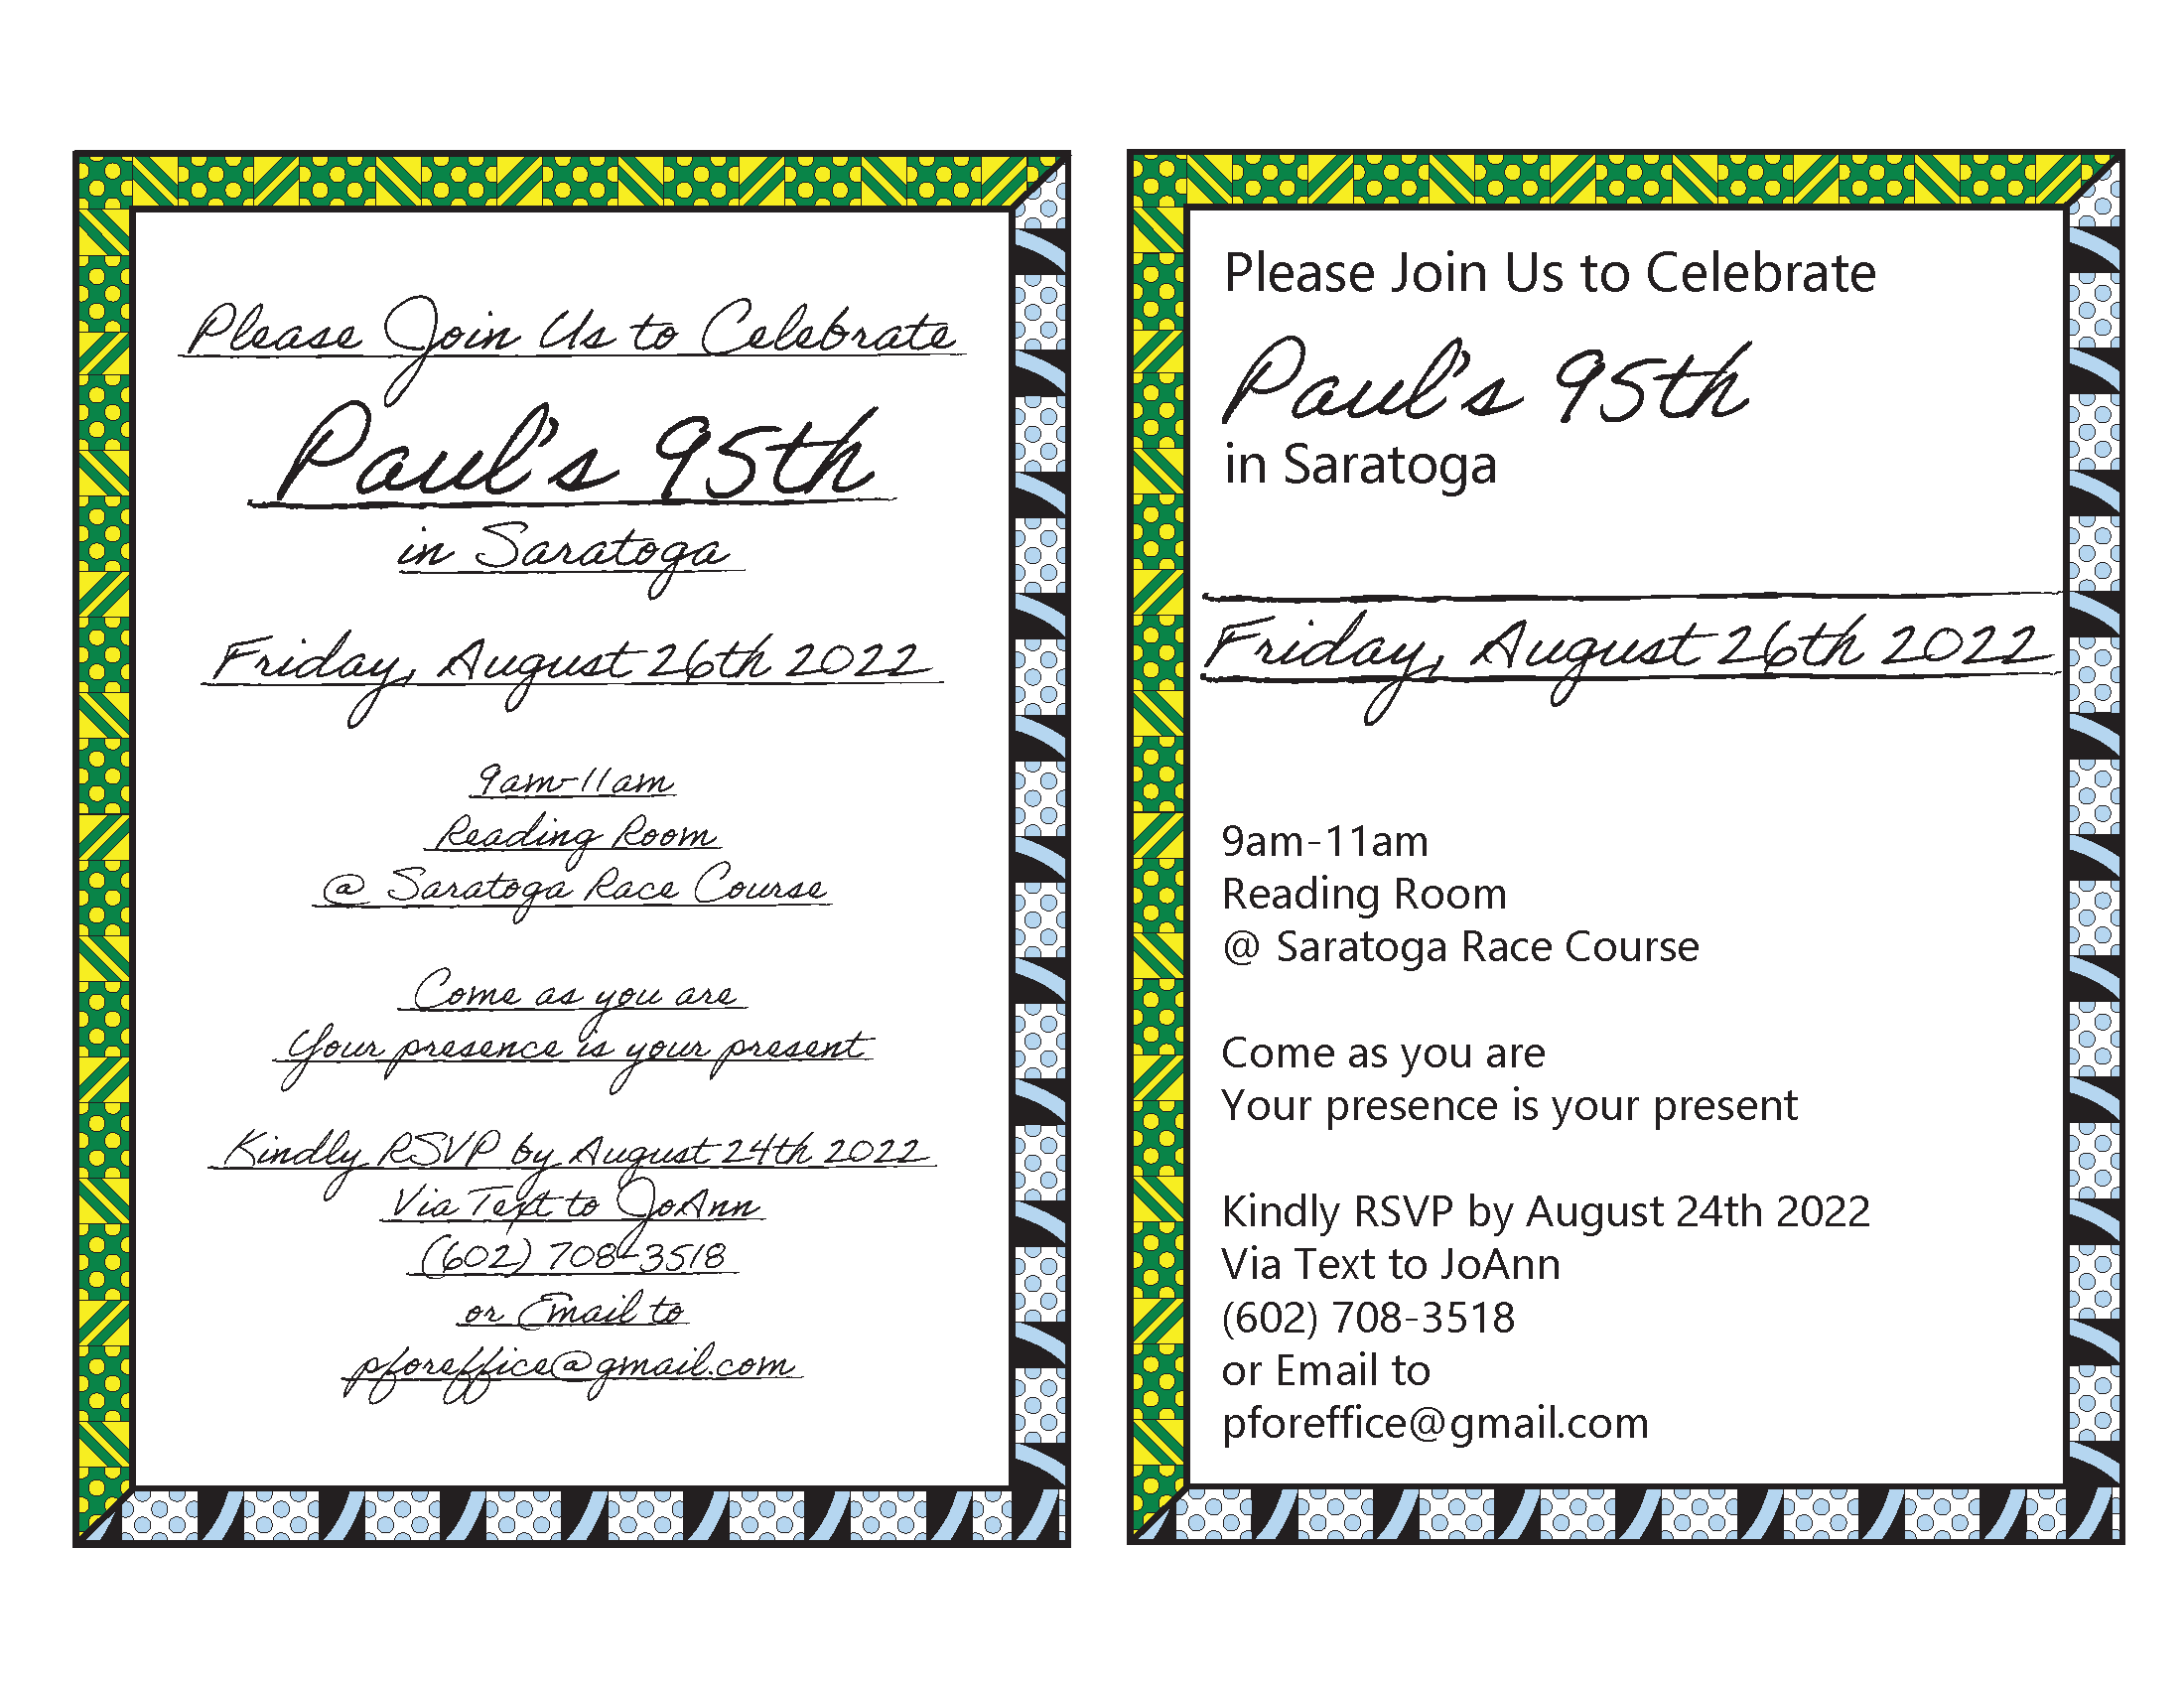 Please Join Us to Celebrate
Paul's 95th
in Saratoga
Friday, August 26th 2022
9am-11am
Reading Room
@ Saratoga Race Course
Come as you are
Your presence is your present
Kindly RSVP by August 24th 2022
Via Text to JoAnn
(602) 708-3518
or Email to
pforeffice@gmail.com
Please Join Us to Celebrate
Paul's 95th
in Saratoga
Friday, August 26th 2022
9am-11am
Reading Room
@ Saratoga Race Course
Come as you are
Your presence is your present
Kindly RSVP by August 24th 2022
Via Text to JoAnn
(602) 708-3518
or Email to
pforeffice@gmail.com